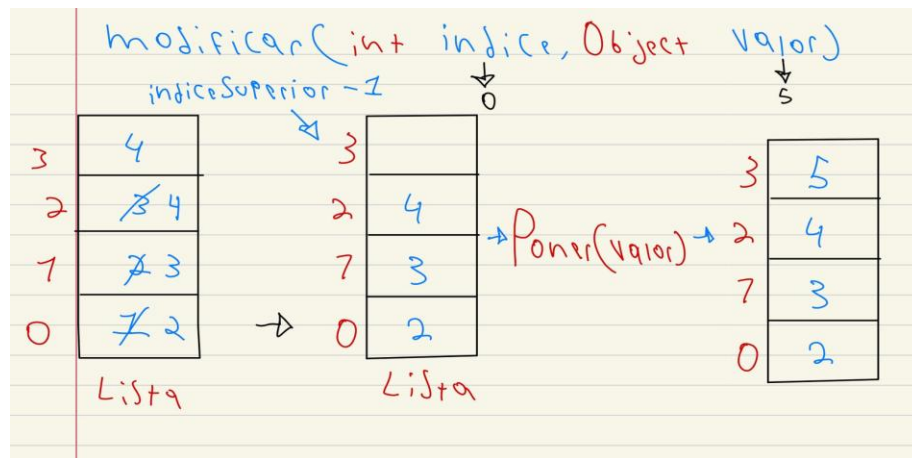 modificar(int indice, Object valor)
0 5
indiceSuperior - 1
3 4
2 3 4
1 2 3
0 1 2
Lista
3
2 4
1 3
0 2
Lista
Poner(valor)
3 5
2 4
1 3
0 2